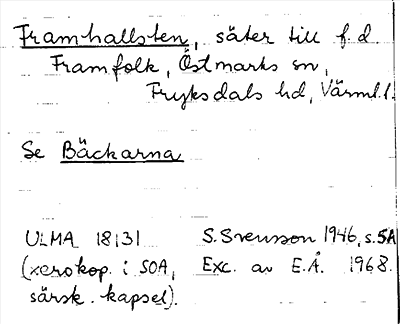 Framhallsten, säter till f.d.
Framfolk, Östmarks sn,
Fryksdals hd, Värml.l.
Se Bäckarna
ULMA 18131 S.Svensson 1946, s.5A
(xerokop. i SOA, Exc. av E.Å. 1968.
särsk. kapsel).